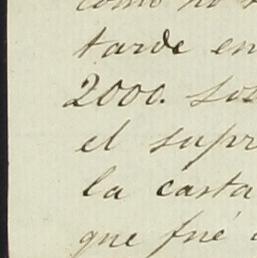 como no
tarde en
2000. sos
el supr
la carta
que fué